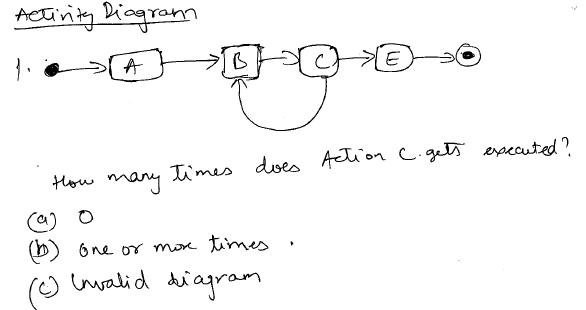 Activity Diagram
1. A B C E
How many times does Action C gets executed?
(a) 0
(b) one or more times.
(c) Invalid diagram